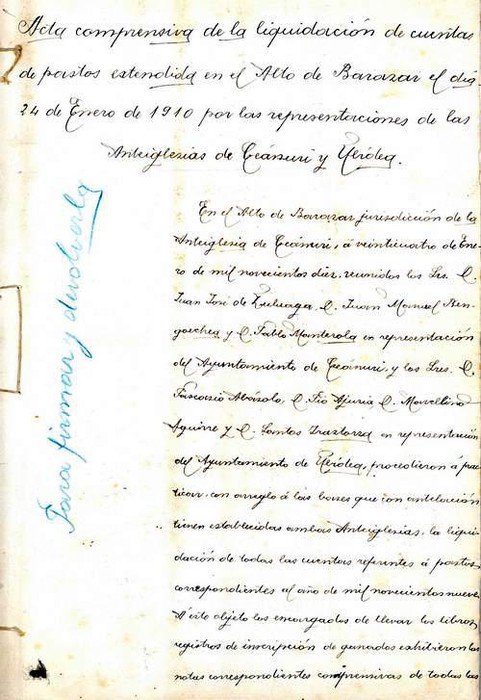 Acta comprensiva de la liquidación de cuentas
de pastos estendida en el Alto de Barazar el día
24 de Enero de 1910 por las representaciones de las
Anteiglesias de Ceánuri y Ubidea.
Para firmar y devolverla
En el Alto de Barazar jurisdicción de la
Anteiglesia de Ceánuri, á veinticuatro de Ene-
ro de mil novecientos diez, reunidos los Sres. D.
Juan José de Zuluaga, D. Juan Manuel Ben-
goechea y D. Pablo Manterola en representación
del Ayuntamiento de Ceánuri, y los Sres. D.
Pascasio Abásolo, D. Pío Ajuria, D. Marcelino
Aguirre y D. Santos Iraztorza en representación
del Ayuntamiento de Ubidea, procedieron á prac-
ticar, con arreglo á las bases que con antelación
tienen establecidas ambas Anteiglesias, la liqui-
dación de todas las cuentas referentes á pastos
correspondientes al año de mil novecientos nueve.
A este objeto los encargados de llevar los libros
registros de inscripción de ganados exhibieron las
notas correspondientes comprensivas de todas las